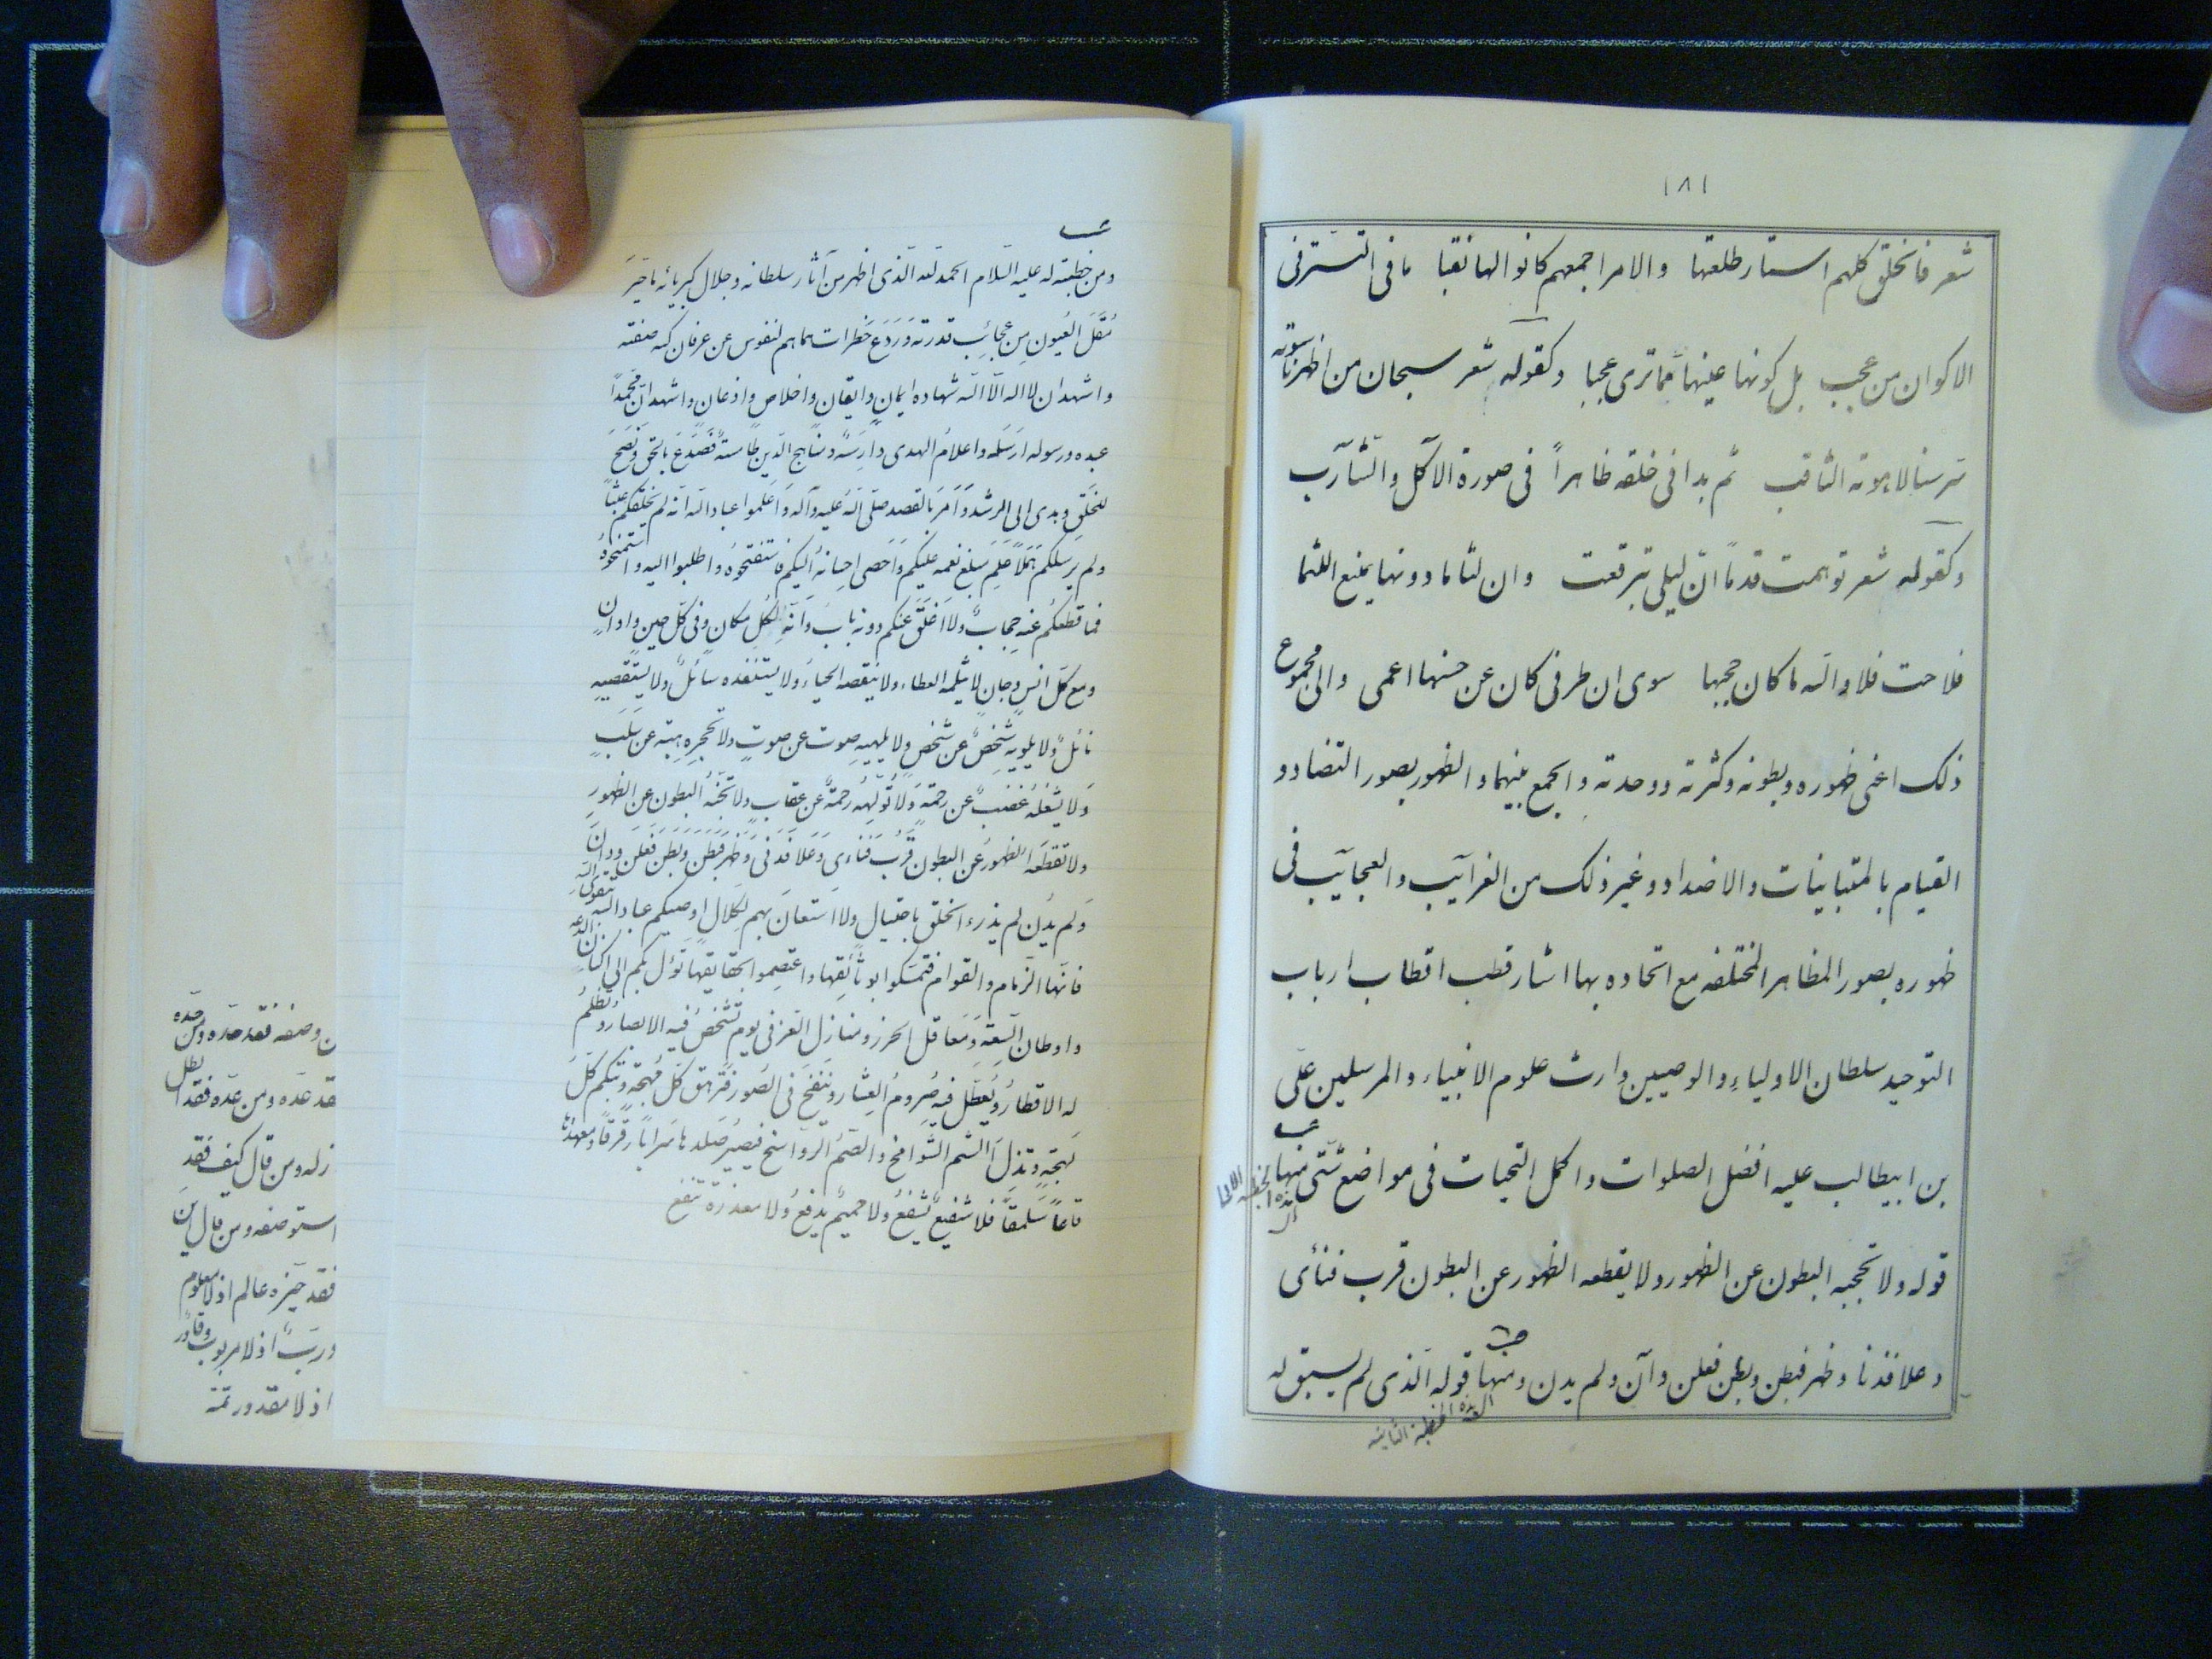 ١٨١
شعر فالخلق كلهم استار طلعتها والامر اجمعهم كانوا لها نقبا ما فى التستر فى
الاكوان من عجب بل كونها عينها مما ترى عجبا وكقوله شعر سبحان من اظهر ناسوته
سر سنا لاهوته الثاقب ثم بدا فى خلقه ظاهراً فى صورة الآكل والشآرب
وكقوله شعر توهمت قدماً ان ليلى تبرقعت وان لثاما دونها يمنع اللثما
فلاحت فلا والله ما كان حجبها سوى ان طرفى كان عن حسنها اعمى والى مجموع
ذلك اعنى ظهوره وبطونه وكثرته ووحدته والجمع بينهما والظهور بصور التضاد و
القيام بالمتباينات والاضداد وغير ذلك من الغرآيب والعجآيب فى
ظهوره بصور المظاهر المختلفه مع اتحاده بها اشار قطب اقطاب ارباب
التوحيد سلطان الاولياء والوصيين وارث علوم الانبياء والمرسلين على
بن ابيطالب عليه افضل الصلوات واكمل التحيات فى مواضع شتى منها
قوله ولا تحجبه البطون عن الظهور ولا يقطعه الظهور عن البطون قرب فنأى
وعلا فدنا وظهر فبطن وبطن فعلن ودآن ولم يدن ومنها قوله الذى لم يسبق له
الخطبة الثانيه
ومن خطبته له عليه السلام الحمد لله الذى اظهر من آثار سلطانه وجلال كبريائه ما حَيَّرَ
مُقَلَ العُيونِ مِن عجائِبِ قدرته وَرَدَعَ خَطَرات هماهم النفوس عن عرفان كنه صفته
واشهد ان لا اله الا الله شهاده ايمانٍ وايقانٍ واخلاصٍ واذعانٍ واشهد انّ محمداً
عبده ورسوله اَرسَلَه واعلامُ الهدى دارِسَةٌ ومناهج الدّين طامسةٌ فَصَدَعَ بالحق ونَصَحَ
للخَلقِ وهدى الى الرشد وَاَمَرَ بالقصد صلى الله عليه وآله وَاعلموا عباد الله انه لم يخلقكم عبثاً
ولم يرسلكم هَمَلاً عَلِمَ مبلغ نعمه عليكم وَاَحصى احسانهُ اليكم فاستفتحُوه واطلبوا اليه واستمنحوهُ
فما قطعكُم عنه حجابٌ ولا اُغلِقَ عنكم دونه بابٌ وَانّه لَبِكُلِ مكانٍ وفى كل حينٍ واوانٍ
ومع كل انسٍ وجانٍ لا يثلمه العطاء ولا ينقصه الحباءُ ولا يستنفده سائلٌ ولا يستقصيهِ
نائلٌ ولا يلويهِ شَخصٌ عن شخصٍ ولا يلهيهِ صوت عن صوتٍ ولا تحجزه هبته عن سَلبٍ
وَلا يشغلهُ غضبٌ عن رحمةٍ وَلا تُولِهُه رحمةٌ عن عقابٍ ولا تُجِنُّه البطون عن الظهورِ
ولا تقطعه الظهورُ عن البطون قَرُبَ فَنَاءى وَعَلا فَدَنى وَظَهَرَ فَبَطَنَ وَبَطَنَ فَعَلَنَ ودانَ
وَلَم يُدَن لم يذرء الخلق باحتيال ولا استعان بهم لِكَلالٍ اوصيكم عباد الله بتقوى الله
فانّها الزمام والقوام فتمسكوا بوثائِقِها واعتصموا بحقايقها تَؤُل بكم الى اكنان الدعه
واوطان السَّعَةِ وَمَعاقل الحرز ومنازل العز فى يوم تشخصُ فيه الابصار وتُظلمُ
له الاقطارُ ويُعطَّل فيه صُرومُ العِشار وينفخ فى الصُور فتزهق كلُّ مُهجةٍ وتبكم كلُّ
لهجةٍ وتَذِلَّ الشُم الشوامخ والصُمّ الرواسخ فيصيرُ صَلدها سَراباً رَقرَقاً ومعهدها
قاعاً سَملَقاً فلا شفيعٌ يشفعُ ولا حميمٌ يدفعُ ولا معذرة تنفع
ن وصفه فقد حده ومن حَدّه
فقد عدّه ومن عدّه فقد ابطل
ازله ومن قال كيف فقدِ
استوصفه ومن قال اينَ
فقد حيّزه عالم اذ لا معلوم
وربٌّ اذ لا مربوب وقادر
اذ لا مقدور تمة